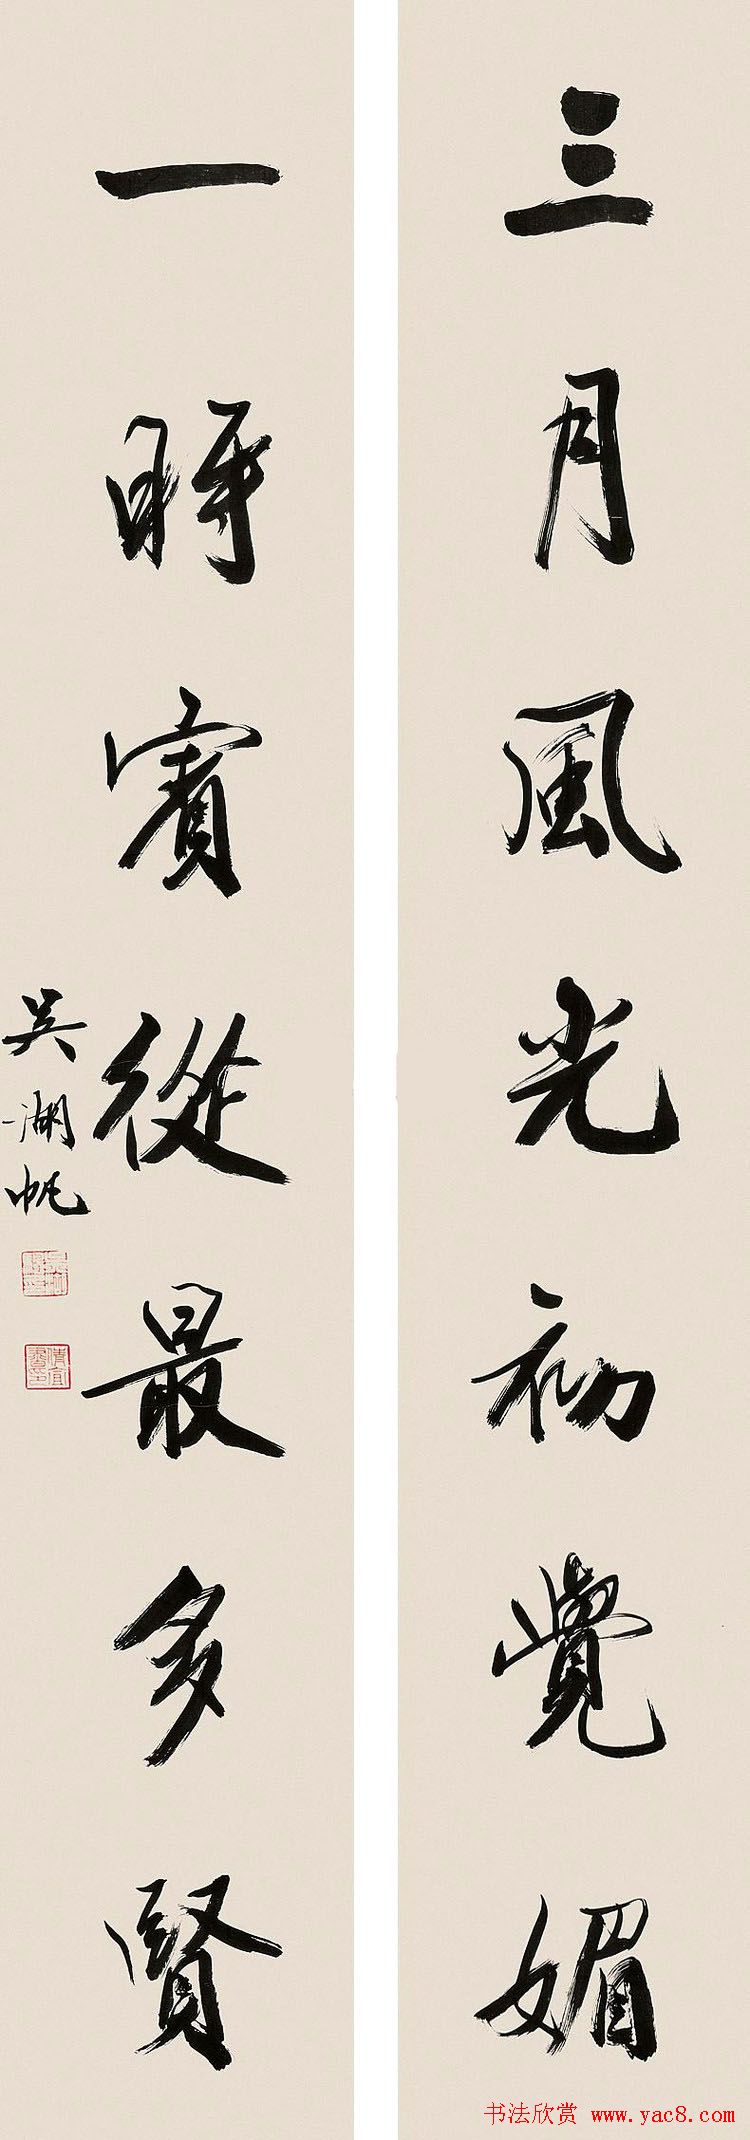 三月風光初覺媚
一時賓從最多賢
吳湖帆
倩盦書印
书法欣赏 www.yac8.com